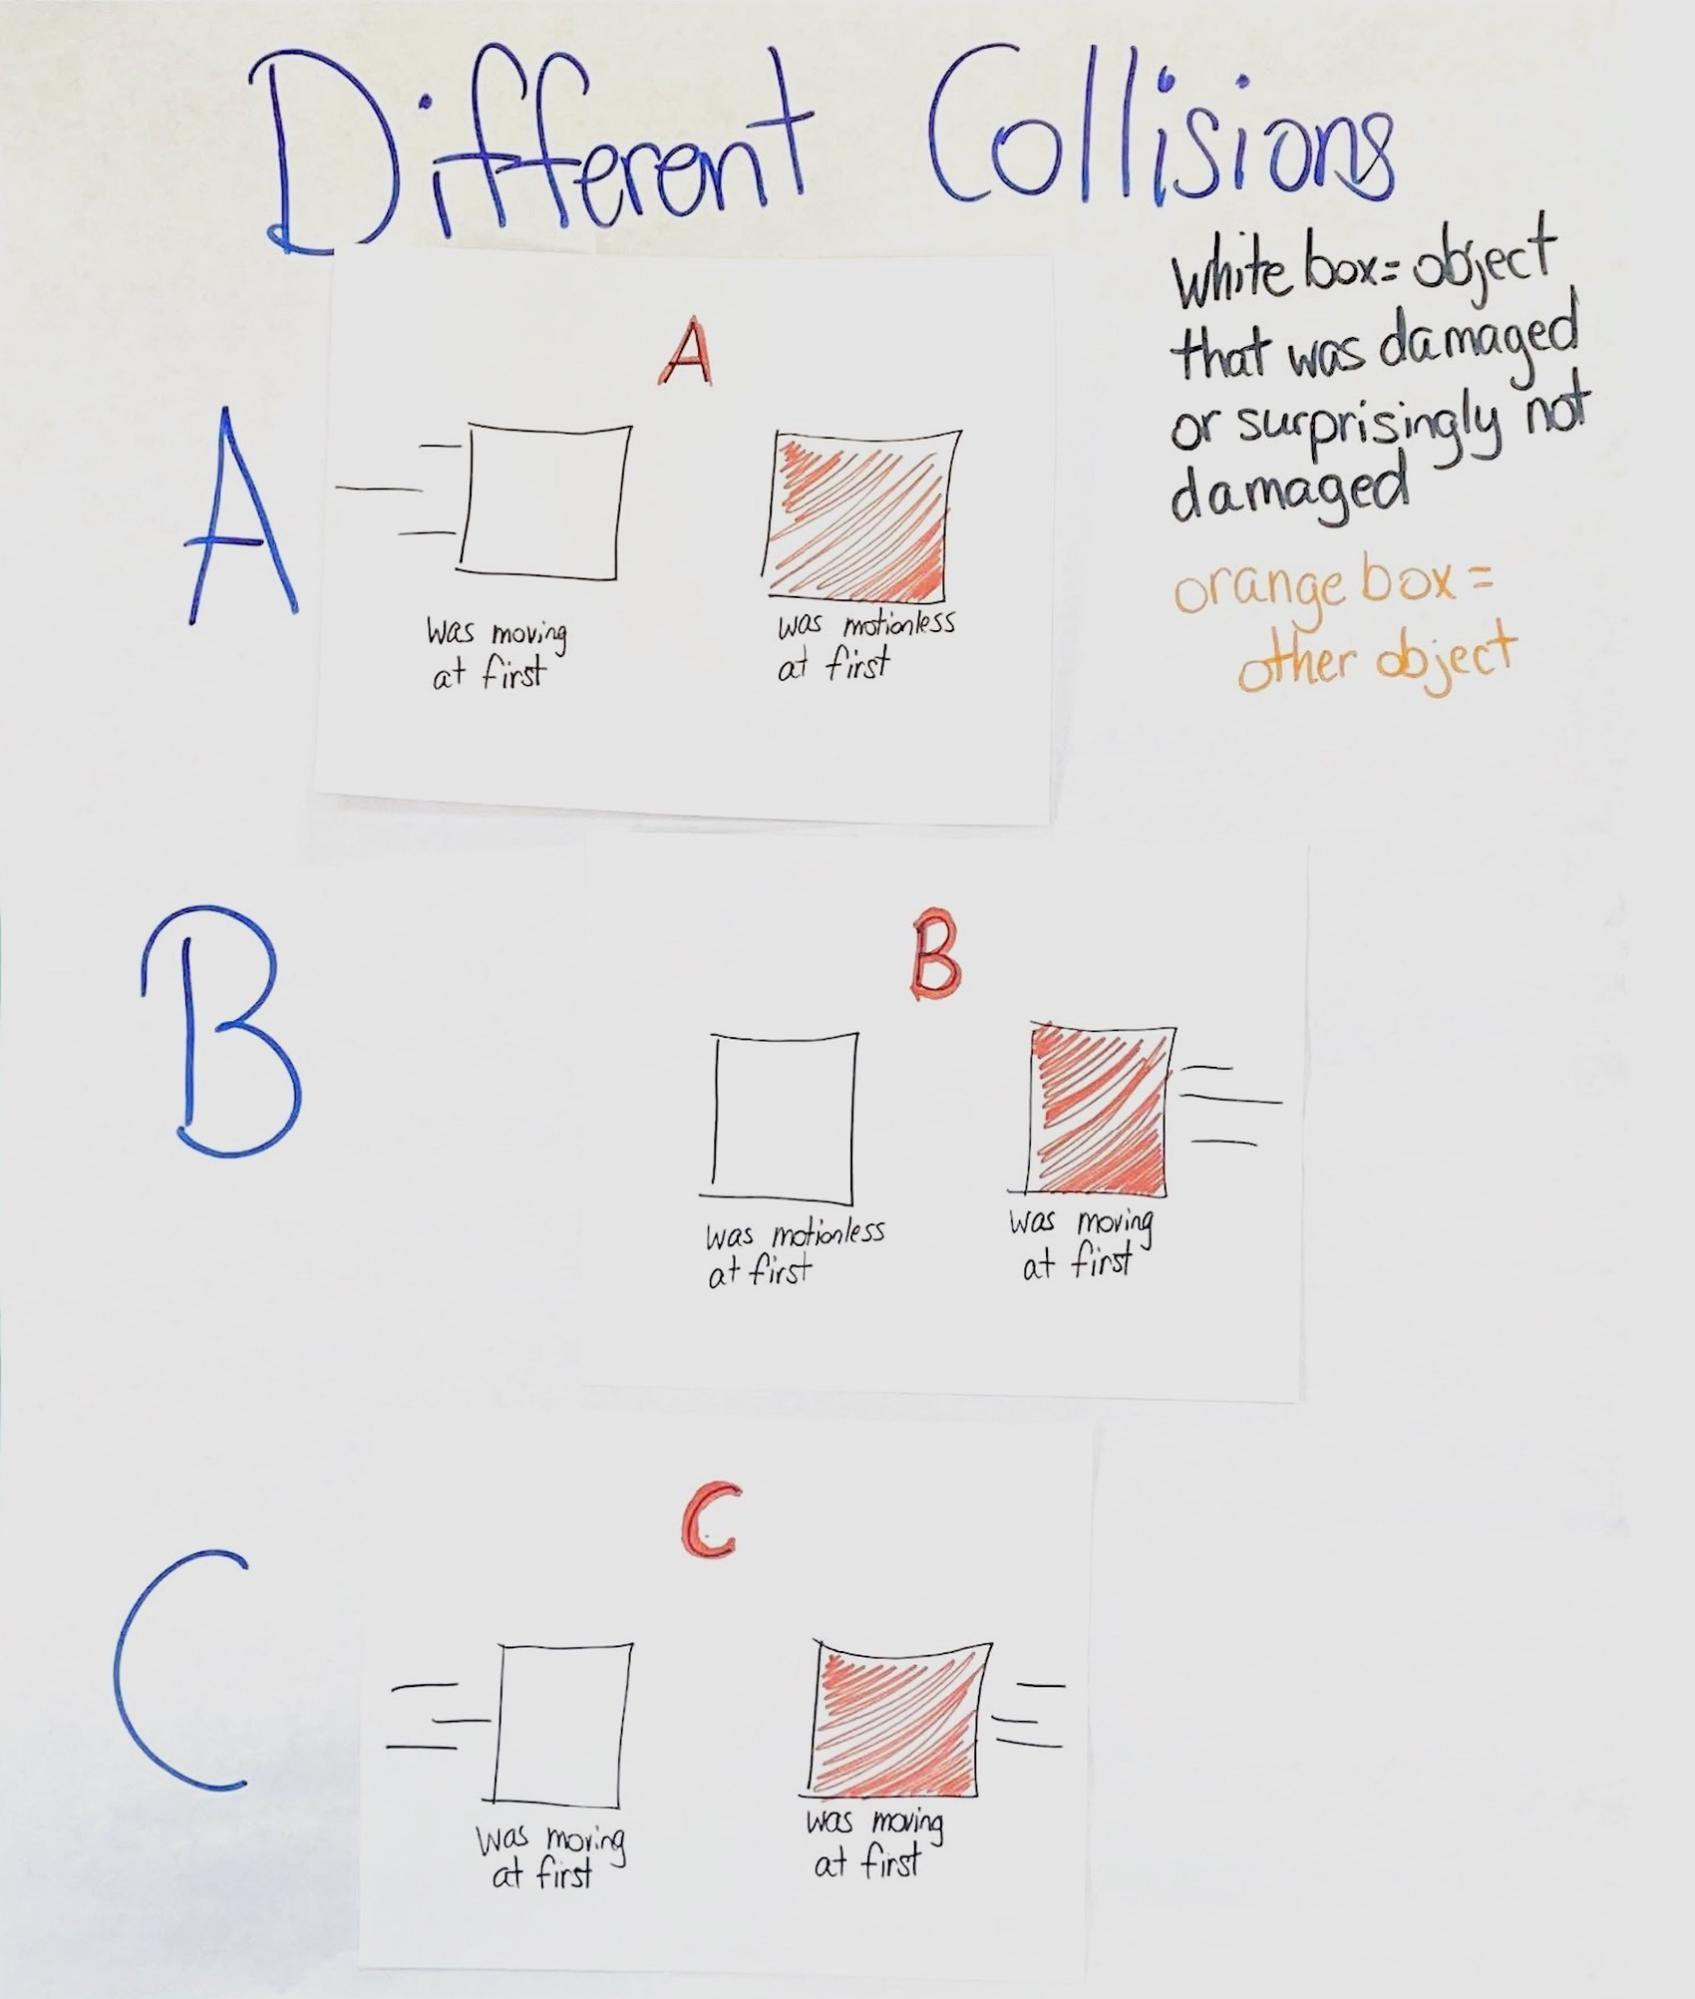 Different Collisions
white box = object
that was damaged
or surprisingly not
damaged
orange box =
other object
A
A
was moving
at first
was motionless
at first
B
B
was motionless
at first
was moving
at first
C
C
was moving
at first
was moving
at first